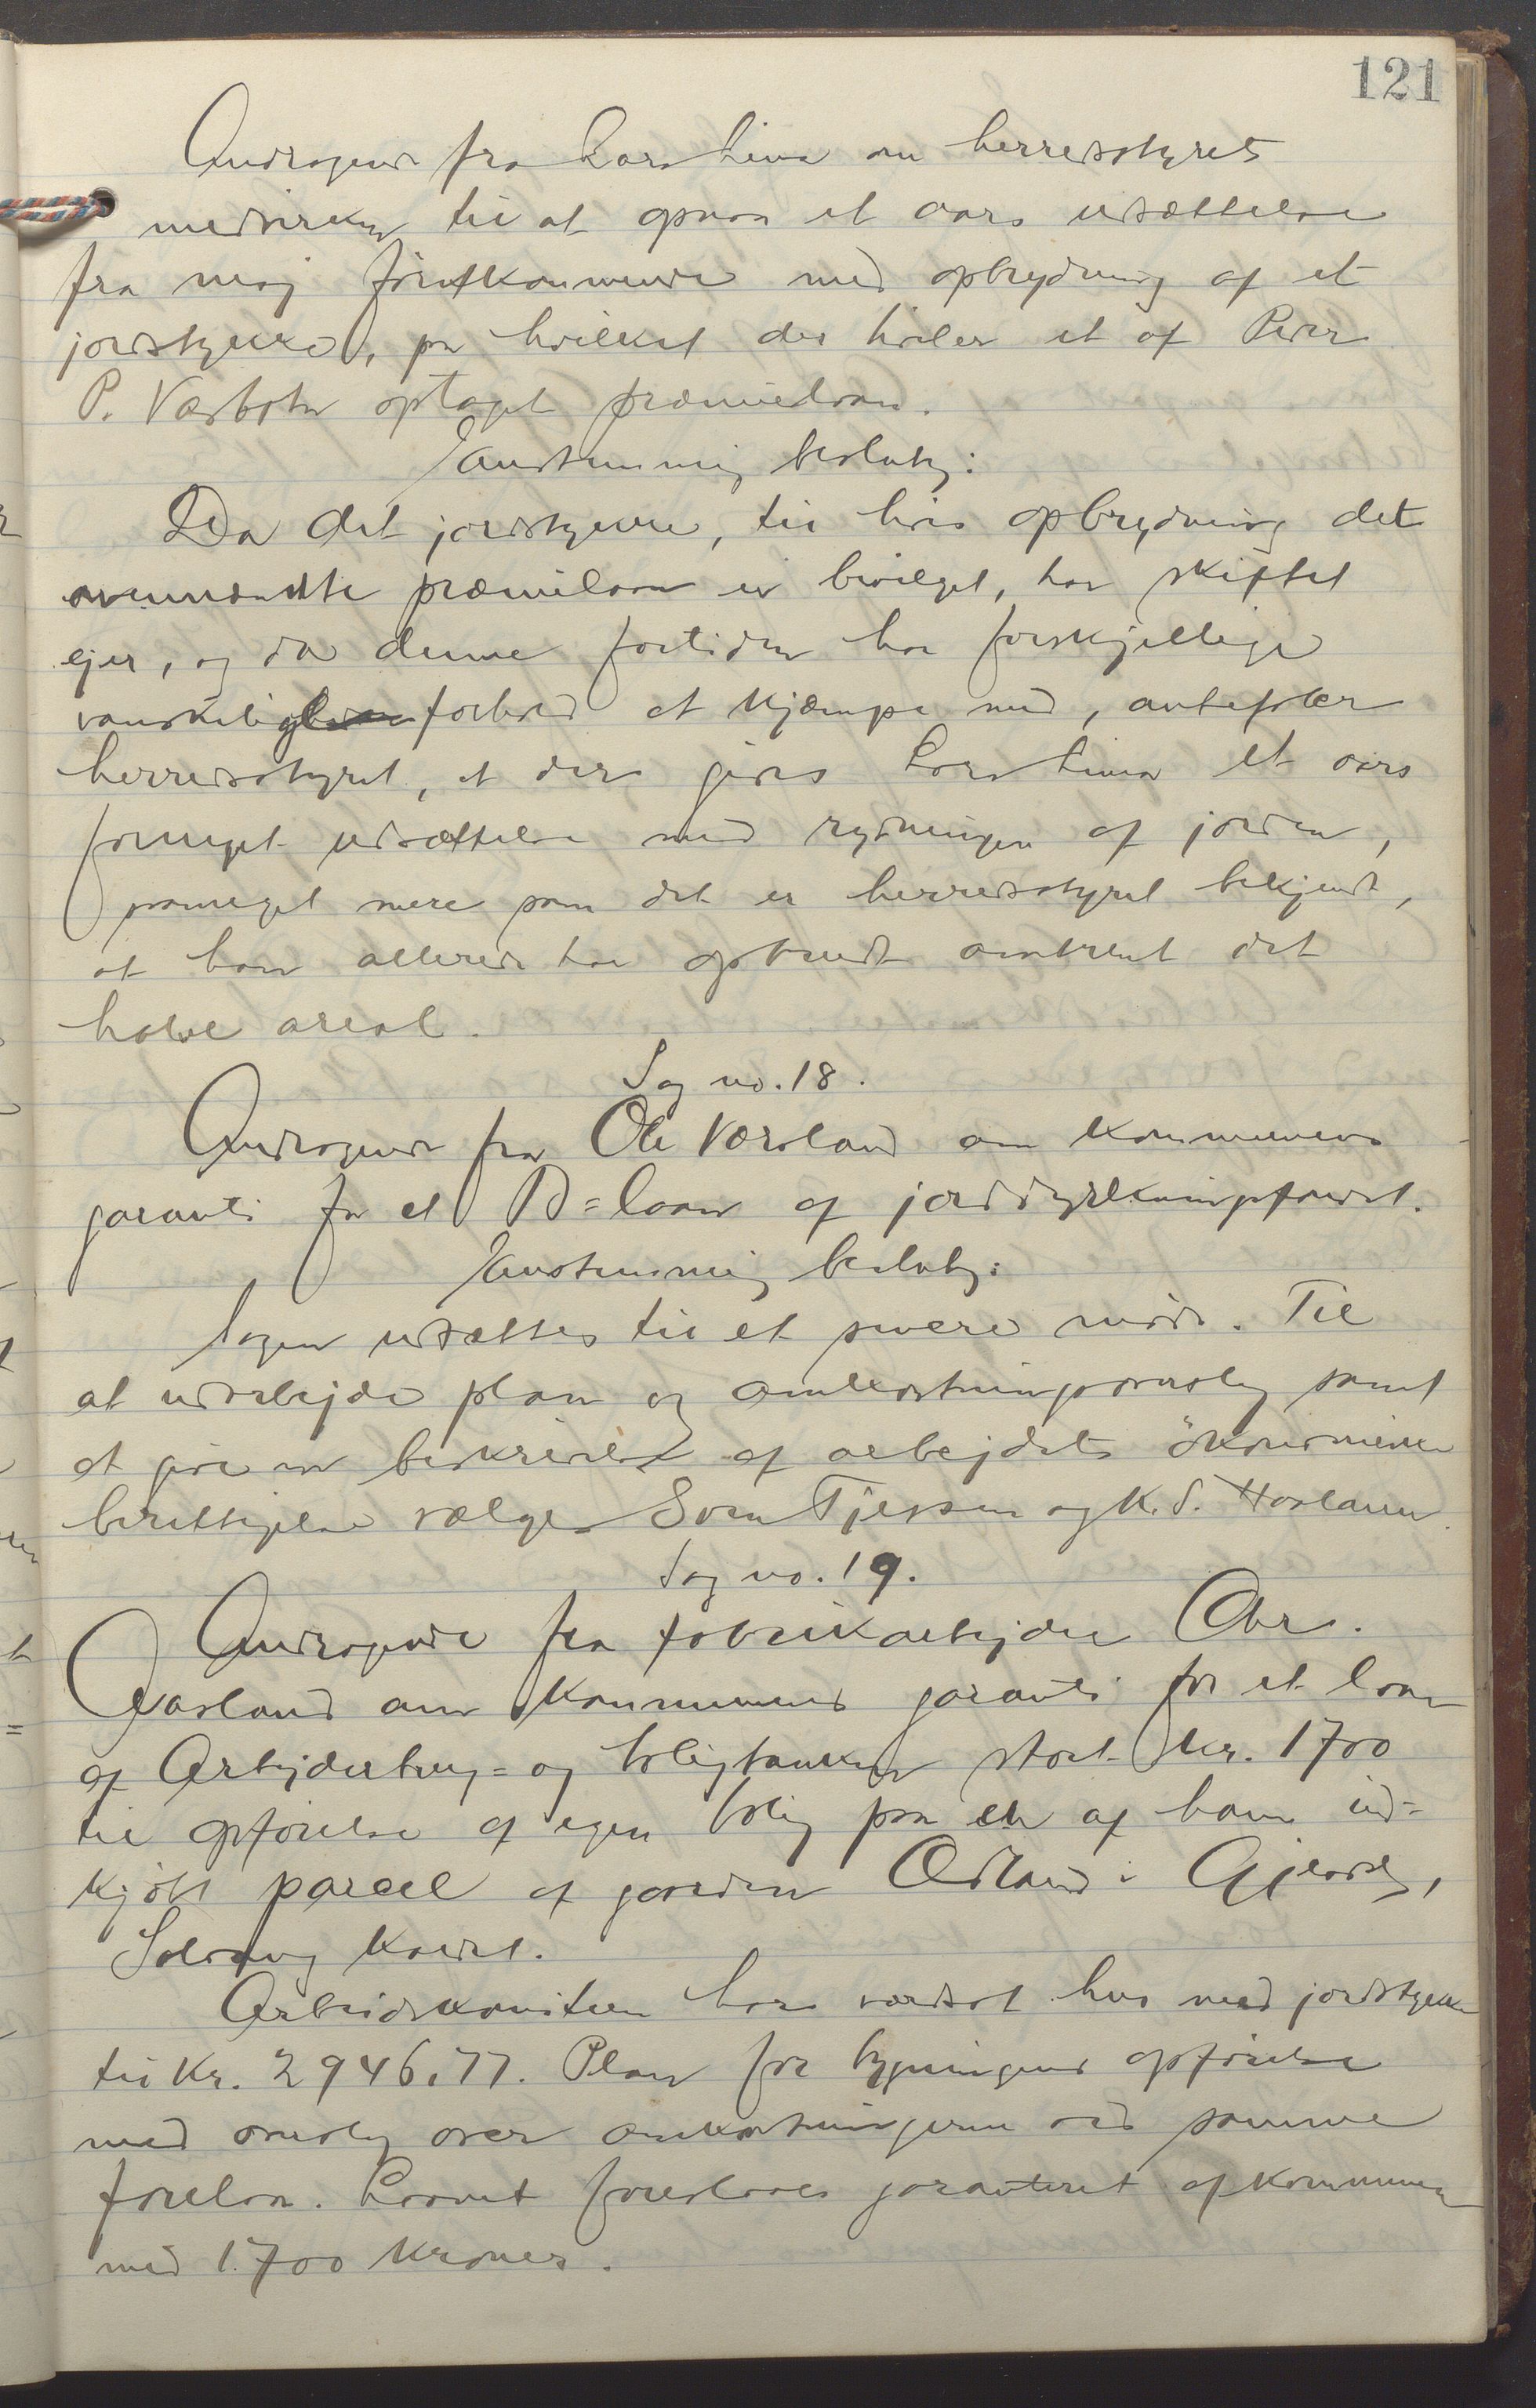 121
Andragende fra Lars Lima om herredsstyrets
medvirken til at opnaa et aars udsættelse
fra maj førstkommende med opbrydning af et
jordstykke, på hvilket der hviler et af Peder
P. Vasbotn optaget præmielaan.
Enstemmig beslutn:
Da det jordstykke, til hvis opbrydning det
ovennævnte præmielaan er bevilget, har skiftet
ejer, og da denne fortiden har forskjellige
vanskelige forhold at kjæmpe med, anbefaler
herredsstyret, at der gives Lars Lima et aars
forlænget udsættelse med rydningen af jorden,
saameget mere som det er herredsstyret bekjendt,
at han allerede har opbrudt omtrent det
halve areal.
Sag no. 18.
Andragende fra Ole Varaland om kommunens
garanti for et D=laan af jorddyrkningsfondet.
Enstemmig beslutn:
Sagen udsættes til et senere møde. Til
at udarbejde plan og omkostningsoverslag samt
at give en beskrivelse af arbejdets ökonomiske
berettigelse vælges Sven Tjessem og K. S. Haaland.
Sag no. 19.
Andragende fra fabrikarbejder Chr.
Aasland om kommunens garanti for et laan
af Arbejderbrug= og boligbanken stort kr. 1700
til opførelse af egen bolig paa en af ham ind=
kjøbt parcel af gaarden Ødland i Gjesdal,
Solvang kaldet.
Arbeidskomiteen har værdsat hus med jordstykke
til Kr. 2946,77. Plan for bygningens opførelse
med overslag over omkostningerne ved samme
forelaa. Laanet foreslaaes garanteret af kommunen
med 1700 kroner.